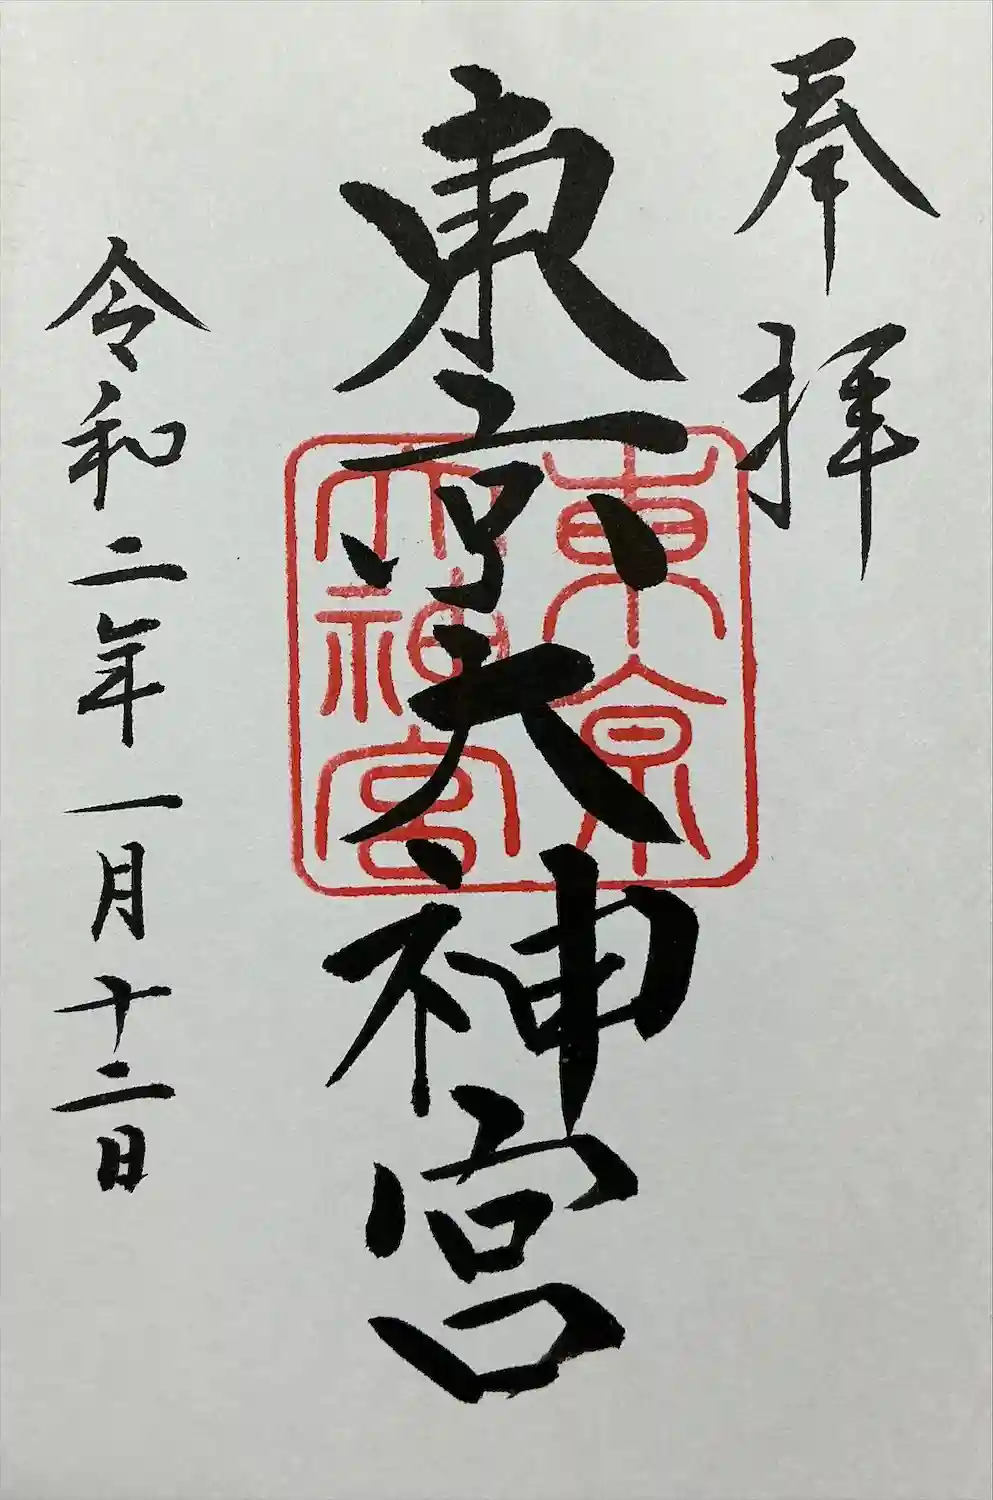 奉拝
東京大神宮
東京
大神宮
令和二年一月十二日